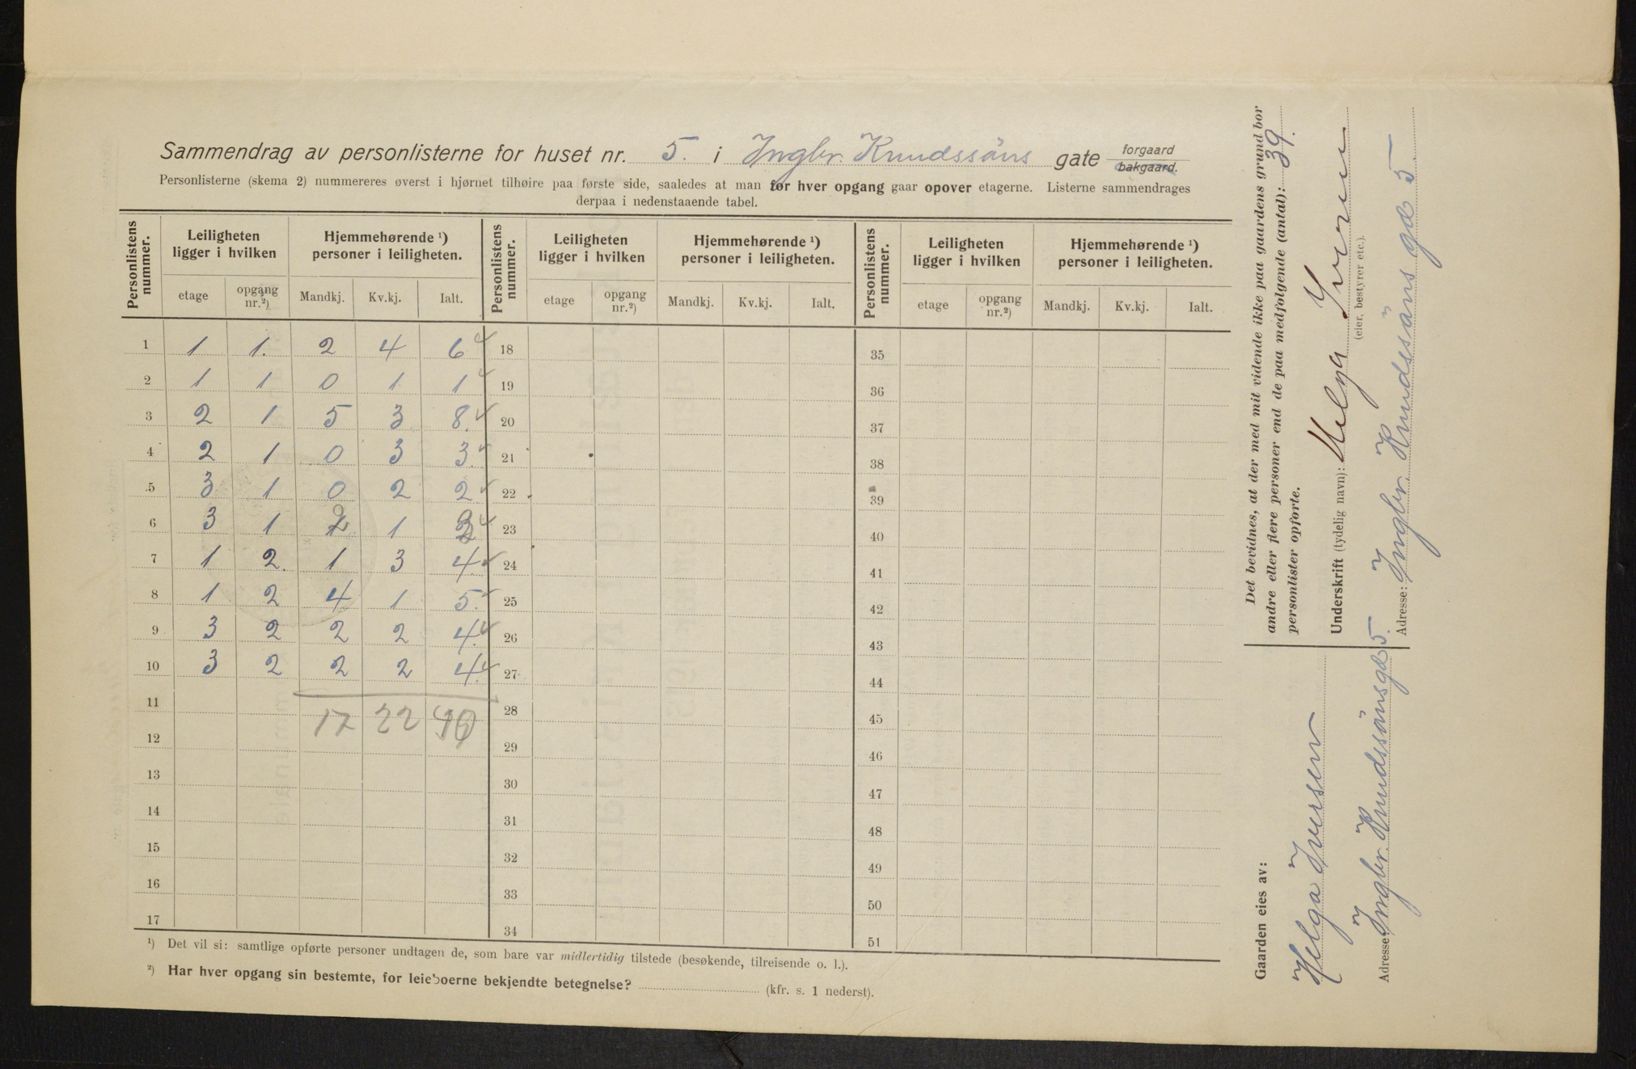 Sammendrag av personlisterne for huset nr. 5. i Ingbr. Knudssöns gate forgaard bakgaard.
Personlisterne (skema 2) nummereres øverst i hjørnet tilhøire paa første side, saaledes at man før hver opgang gaar opover etagerne. Listerne sammendrages
derpaa i nedenstaaende tabel.
Personlistens nummer. Leiligheten ligger i hvilken Hjemmehørende ¹) personer i leiligheten. Personlistens nummer. Leiligheten ligger i hvilken Hjemmehørende ¹) personer i leiligheten. Personlistens nummer. Leiligheten ligger i hvilken Hjemmehørende ¹) personer i leiligheten.
etage opgang nr.²) Mandkj. Kv.kj. Ialt. etage opgang nr.²) Mandkj. Kv.kj. Ialt. etage opgang nr.²) Mandkj. Kv.kj. Ialt.
1 1 1. 2 4 6 18 35
2 1 1 0 1 1 19 36
3 2 1 5 3 8. 20 37
4 2 1 0 3 3. 21 38
5 3 1 0 2 2 22 39
6 3 1 1 23 40
7 1 2. 1 3 4. 24 41
8 1 2 4 1 5. 25 42
9 3 2 2 2 4. 26 43
10 3 2 2 2 4. 27 44
11 17 22 28 45
12 29 46
13 30 47
14 31 48
15 32 49
16 33 50
17 34 51
¹) Det vil si: samtlige opførte personer undtagen de, som bare var midlertidig tilstede (besøkende, tilreisende o. l.).
²) Har hver opgang sin bestemte, for leieboerne bekjendte betegnelse? (kfr. s. 1 nederst).
Det bevidnes, at der med mit vidende ikke paa gaardens grund bor
andre eller flere personer end de paa medfølgende (antal): 39.
personlister opførte.
Underskrift (tydelig navn): Helga Iversen
(eier, bestyrer etc.).
Adresse: Ingbr. Knudssöns gd 5
Gaarden eies av:
Helga Iversen
Adresse: Ingbr. Knudssönsgd 5.